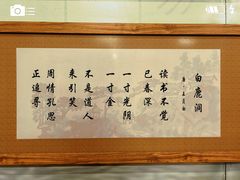 白鹿洞
读书不觉
已春深
一寸光阴
一寸金
不是道人
来引笑
周情孔思
正追寻